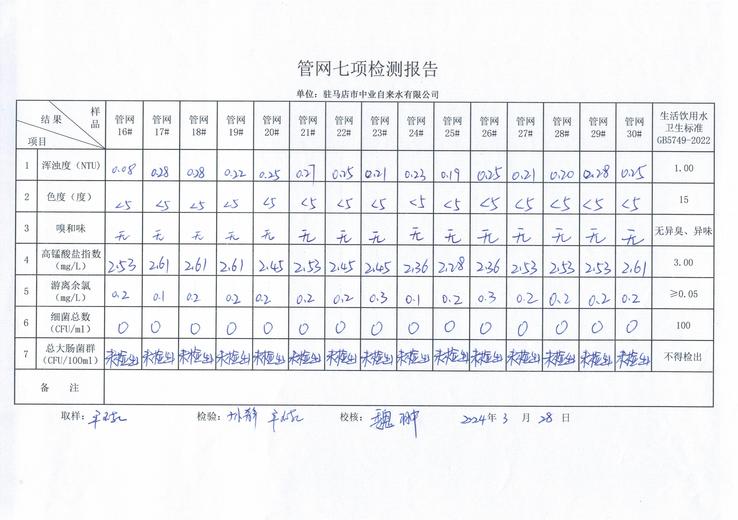 管网七项检测报告
单位：驻马店市中业自来水有限公司
结果 样品 项目 管网16# 管网17# 管网18# 管网19# 管网20# 管网21# 管网22# 管网23# 管网24# 管网25# 管网26# 管网27# 管网28# 管网29# 管网30# 生活饮用水卫生标准GB5749-2022
1 浑浊度（NTU） 0.08 0.28 0.28 0.22 0.25 0.27 0.25 0.21 0.23 0.19 0.25 0.21 0.20 0.28 0.25 1.00
2 色度（度） <5 <5 <5 <5 <5 <5 <5 <5 <5 <5 <5 <5 <5 <5 <5 15
3 嗅和味 无 无 无 无 无 无 无 无 无 无 无 无 无 无 无 无异臭、异味
4 高锰酸盐指数（mg/L） 2.53 2.61 2.61 2.61 2.45 2.53 2.45 2.45 2.36 2.28 2.36 2.53 2.53 2.53 2.61 3.00
5 游离余氯（mg/L） 0.2 0.1 0.2 0.2 0.2 0.2 0.2 0.3 0.1 0.2 0.3 0.2 0.2 0.2 0.2 ≥0.05
6 细菌总数（CFU/ml） 0 0 0 0 0 0 0 0 0 0 0 0 0 0 0 100
7 总大肠菌群（CFU/100ml） 未检出 未检出 未检出 未检出 未检出 未检出 未检出 未检出 未检出 未检出 未检出 未检出 未检出 未检出 未检出 不得检出
备 注
取样： 检验： 校核： 魏翀 2024年 3 月 28 日